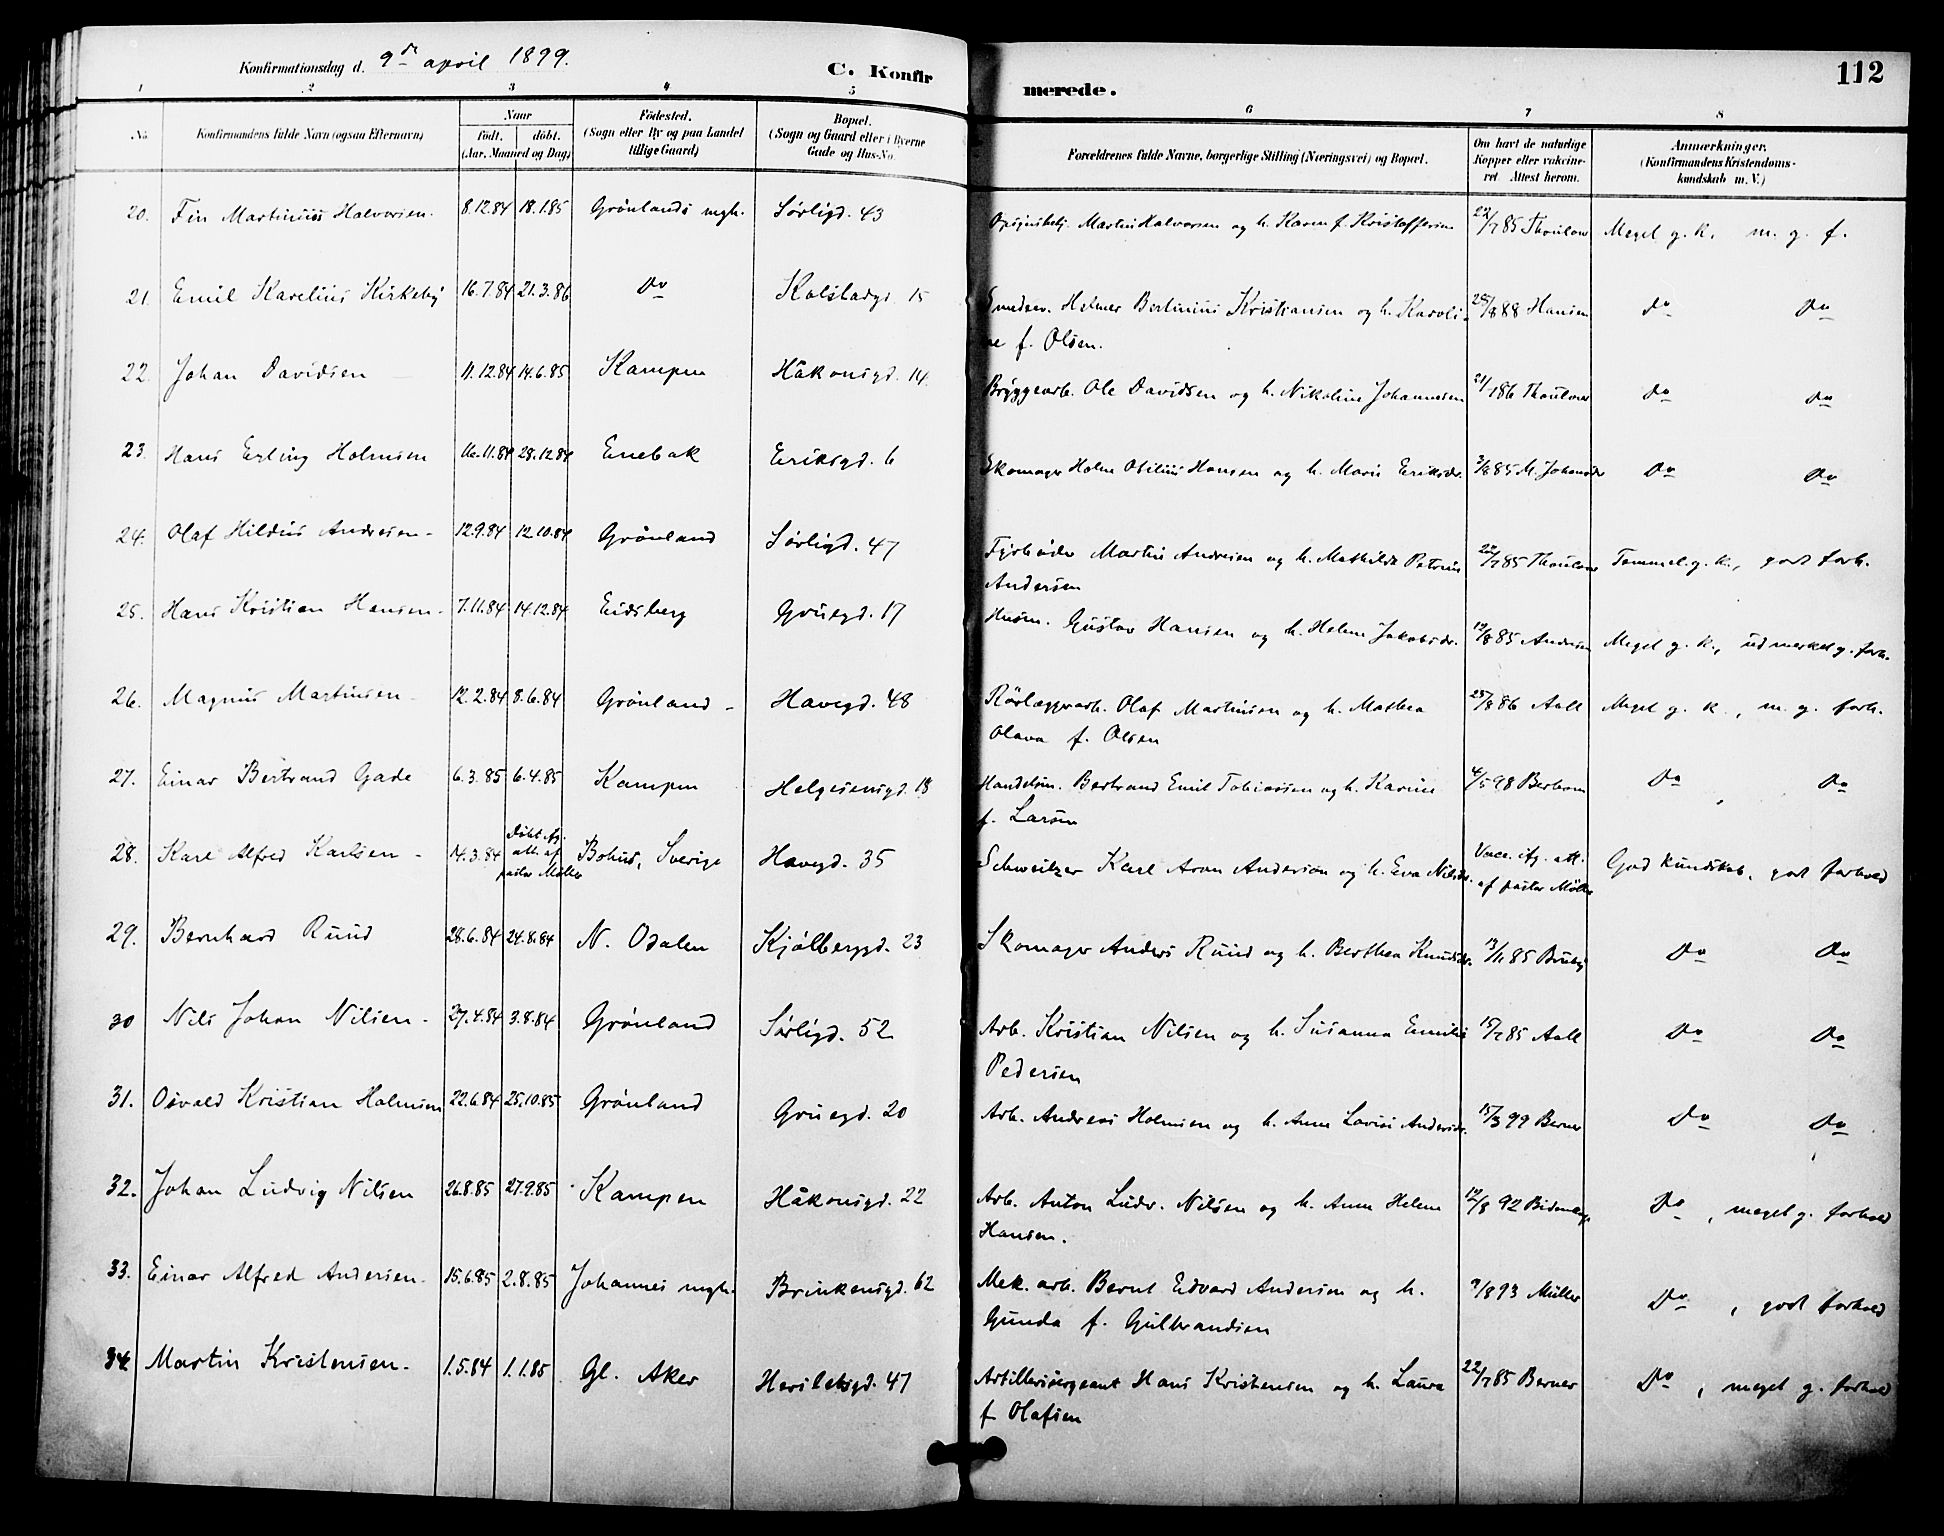 Konfirmationsdag d. 9de april 1899.
C. Konfir
merede.
112
1 2 3 4 5 6 7 8
No. Konfirmandens fulde Navn (ogsaa Efternavn)
Naar
födt. döbt.
(Aar, Maaned og Dag)
Födested.
(Sogn eller By og paa Landet
tillige Gaard)
Bopæl.
(Sogn og Gaard eller i Byerne
Gade og Hus-No.
Forældrenes fulde Navne, borgerlige Stilling (Næringsvei) og Bopæl.
Om havt de naturlige
Kopper eller vakcine-
ret. Attest herom.
Anmærkninger.
(Konfirmandens Kristendoms-
kundskab m. V.)
20. Fin Martinius Halvorsen. 8.12.84 18.1.85 Grönlands mgh. Sørligd. 43 Martin Halvorsen og h. Karen f. Kristoffersen 22/7 85 Thoulow Meget g. k. m. g. f.
21. Emil Karelius Kirkeby 16.7.84 21.3.86 Do Kolstadgd. 15 Smedsv. Helmer Bertinius Kristiansen og h. Karoli-
ne f. Olsen. 25/8 88 Hansen Do Do
22. Johan Davidsen 11.12.84 14.6.85 Kampen Håkonsgd. 14. Bryggearb. Ole Davidsen og h. Nikoline Johannesen 21/7 86 Thoulow Do Do
23. Hans Erling Holmsen 16.11.84 28.12.84 Enebak Eriksgd. 6 Skomager Holm Otilius Hansen og h. Marie Eriksdr. 3/8 85 M. Johansdr Do Do
24. Olaf Hildus Andresen - 12.9.84 12.10.84 Grønland Sørligd. 47 Fyrbøder Martin Andresen og h. Mathilde Petrine
Andersen 22/7 85 Thoulow Temmel. g. k., godt forh.
25. Hans Kristian Hansen - 7.11.84 14.12.84 Eidsberg Gruegd. 17 Husm. Gustav Hansen og h. Helene Jakobsdr. 19/8 85 Andersen Meget g. k., udmerket g. forh.
26. Magnus Martinsen - 12.2.84 8.6.84 Grönland - Havegd. 48 Rörlæggerarb. Olaf Martinsen og h. Mathea
Olava f. Olsen 25/8 86 Aall Meget g. k., m. g. forh.
27. Einar Bertrand Gade 6.3.85 6.4.85 Kampen Helgesensgd. 18 Handelsm. Bertrand Emil Tobiassen og h. Karine
f. Larsen 4/5 98 Berner Do, Do
28. Karl Alfred Karlsen - 14.3.84 Døbt ifg.
att. af
pastor Møller Bohus, Sverige Havegd. 35 Schweitzer Karl Aron Andersson og h. Eva Nilsdr. Vacc. ifg. att.
af pastor Møller God kundskab, godt forhold
29. Bernhard Ruud 28.6.84 24.8.84 N. Odalen Kjølberggd. 23 Skomager Anders Ruud og h. Berthea Knudsdr. 13/11 85 Do Do
30 Nils Johan Nilsen - 27.4.84 3.8.84 Grönland Sørligd. 52 Arb. Kristian Nilsen og h. Susanna Emilie
Pedersen 15/7 85 Aall Do Do
31. Osvald Kristian Holmsen 22.6.84 25.10.85 Grönland Gruegd. 20 Arb. Andreas Holmsen og h. Anne Lovise Andersdr. 15/3 99 Berner Do Do
32. Johan Ludvig Nilsen 26.8.85 27.9.85 Kampen Håkonsgd. 22 Arb. Anton Ludv. Nilsen og h. Anne Helene
Hansen. 12/8 92 Do, meget g. forhold
33. Einar Alfred Andersen. 15.6.85 2.8.85 Johannes mgh. Brinkensgd. 62 Mek. arb. Bernt Edvard Andersen og h.
Gunda f. Gulbrandsen 9/8 93 Müller Do, godt forhold
34. Martin Kristensen. 1.5.84 1.1.85 Gl. Aker Herslebsgd. 47 Artillerisergeant Hans Kristensen og h. Laura
f Olafsen 22/7 85 Berner Do, meget g. forhold